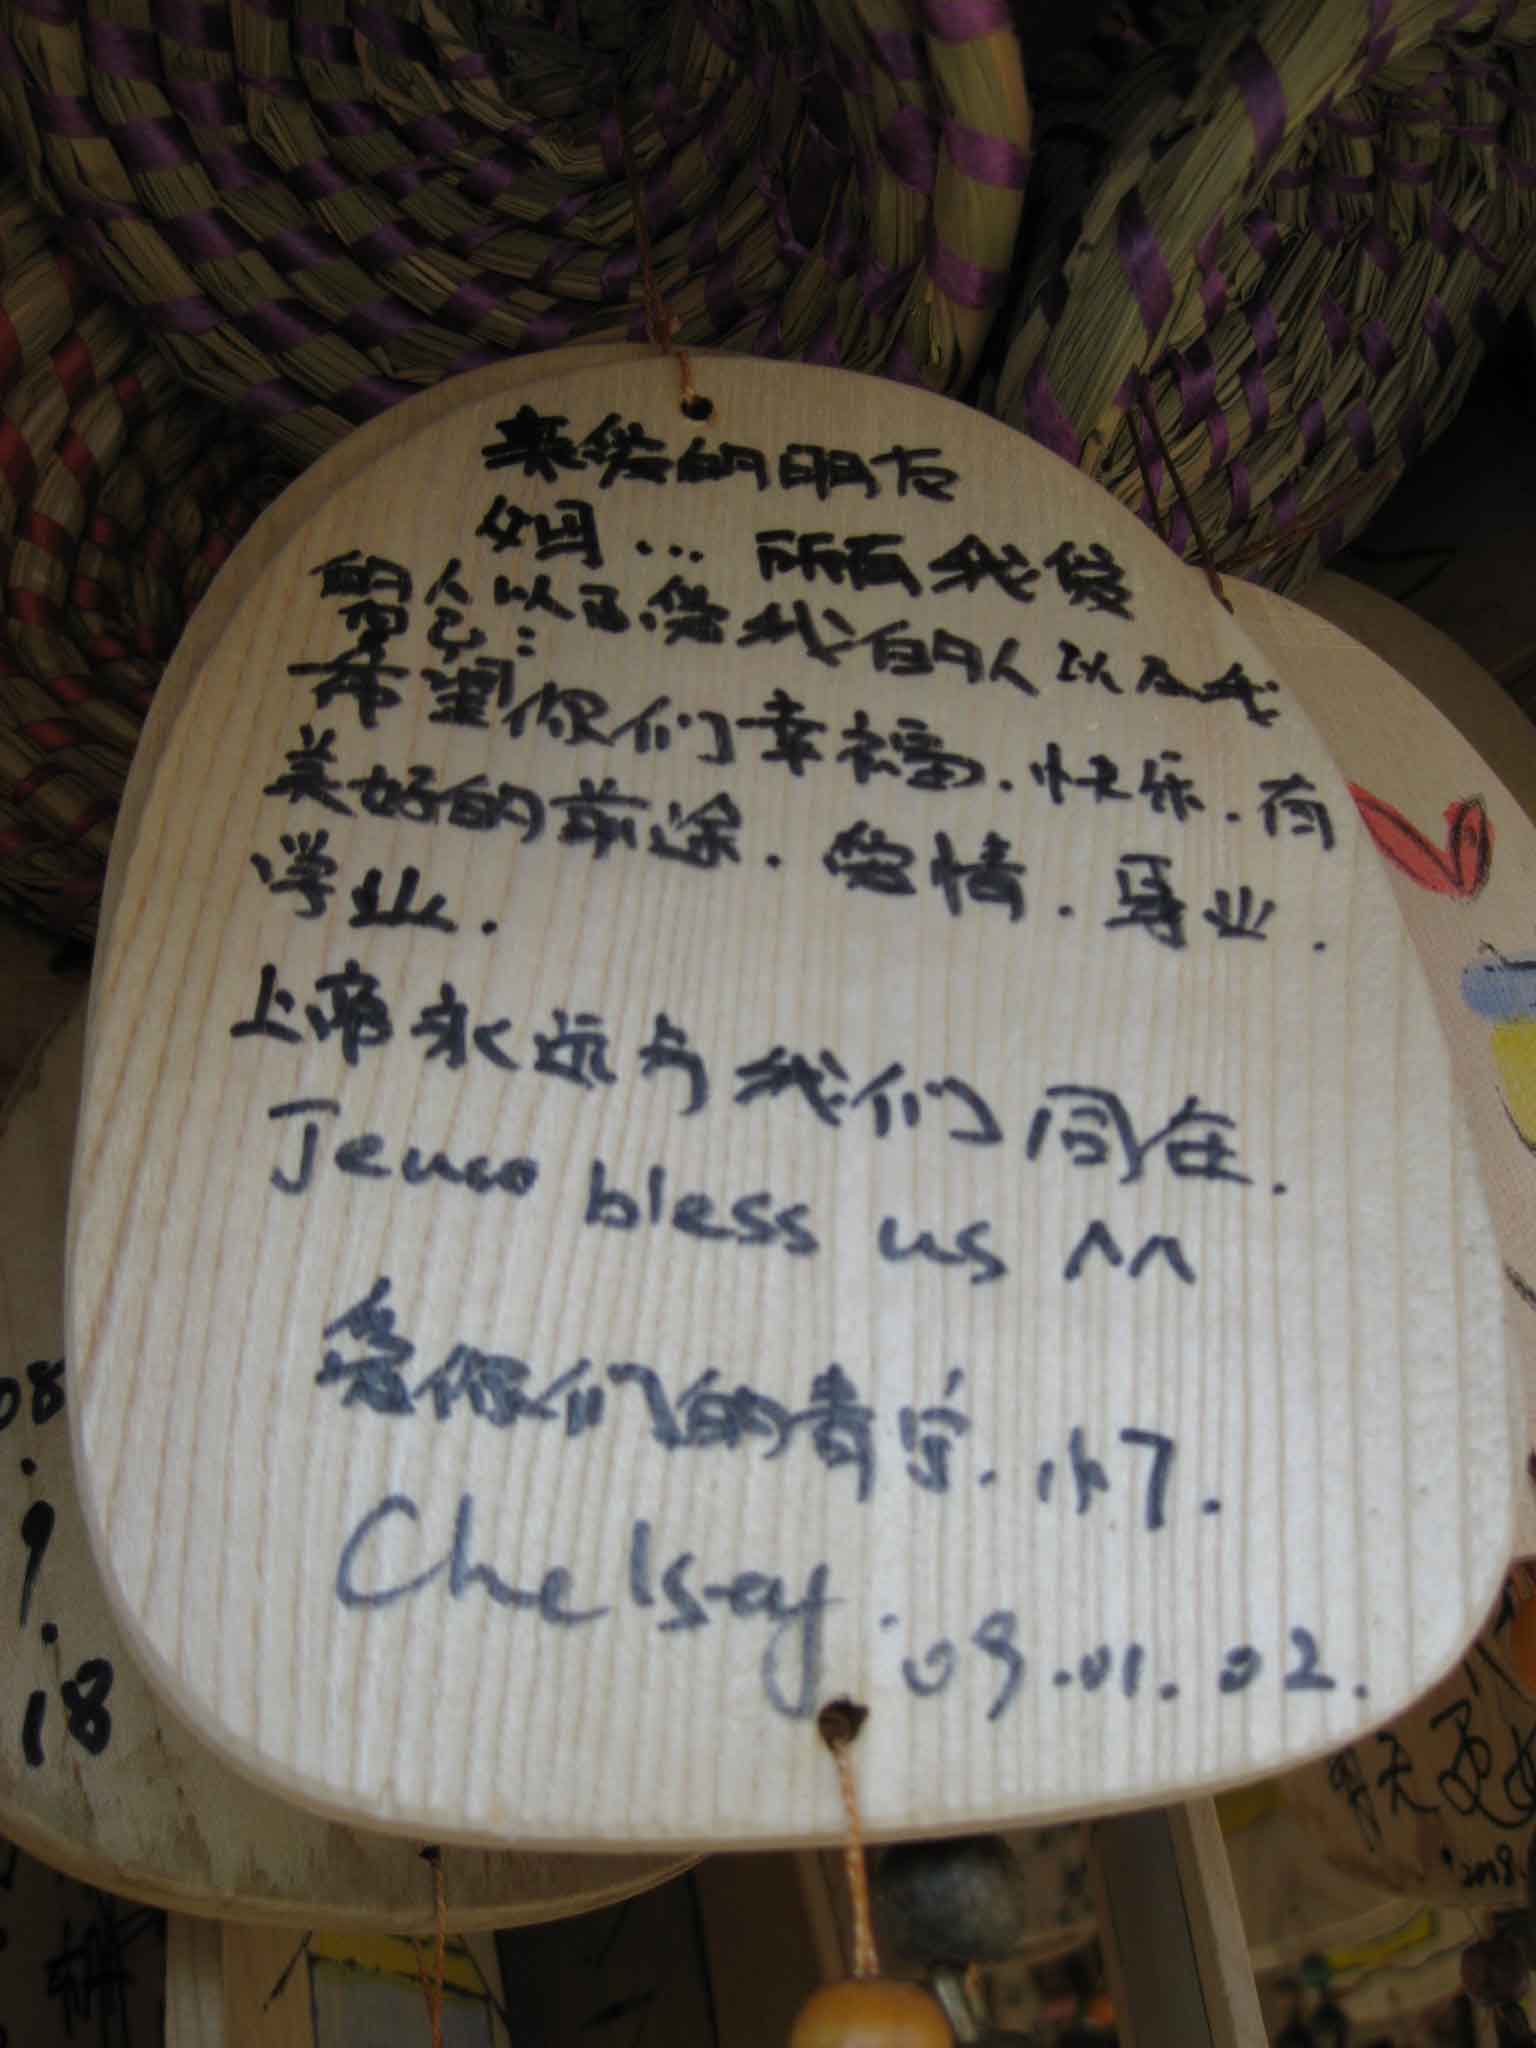 亲爱的朋友
姐… 所有我爱
的人以及爱我的人以及我
自己:
希望你们幸福.快乐.有
美好的前途.爱情.事业.
学业.
上帝永远与我们同在.
Jesus bless us ^^
爱你们的青字.
Chelsay '09.01.02.
08
.9
.18
明天更